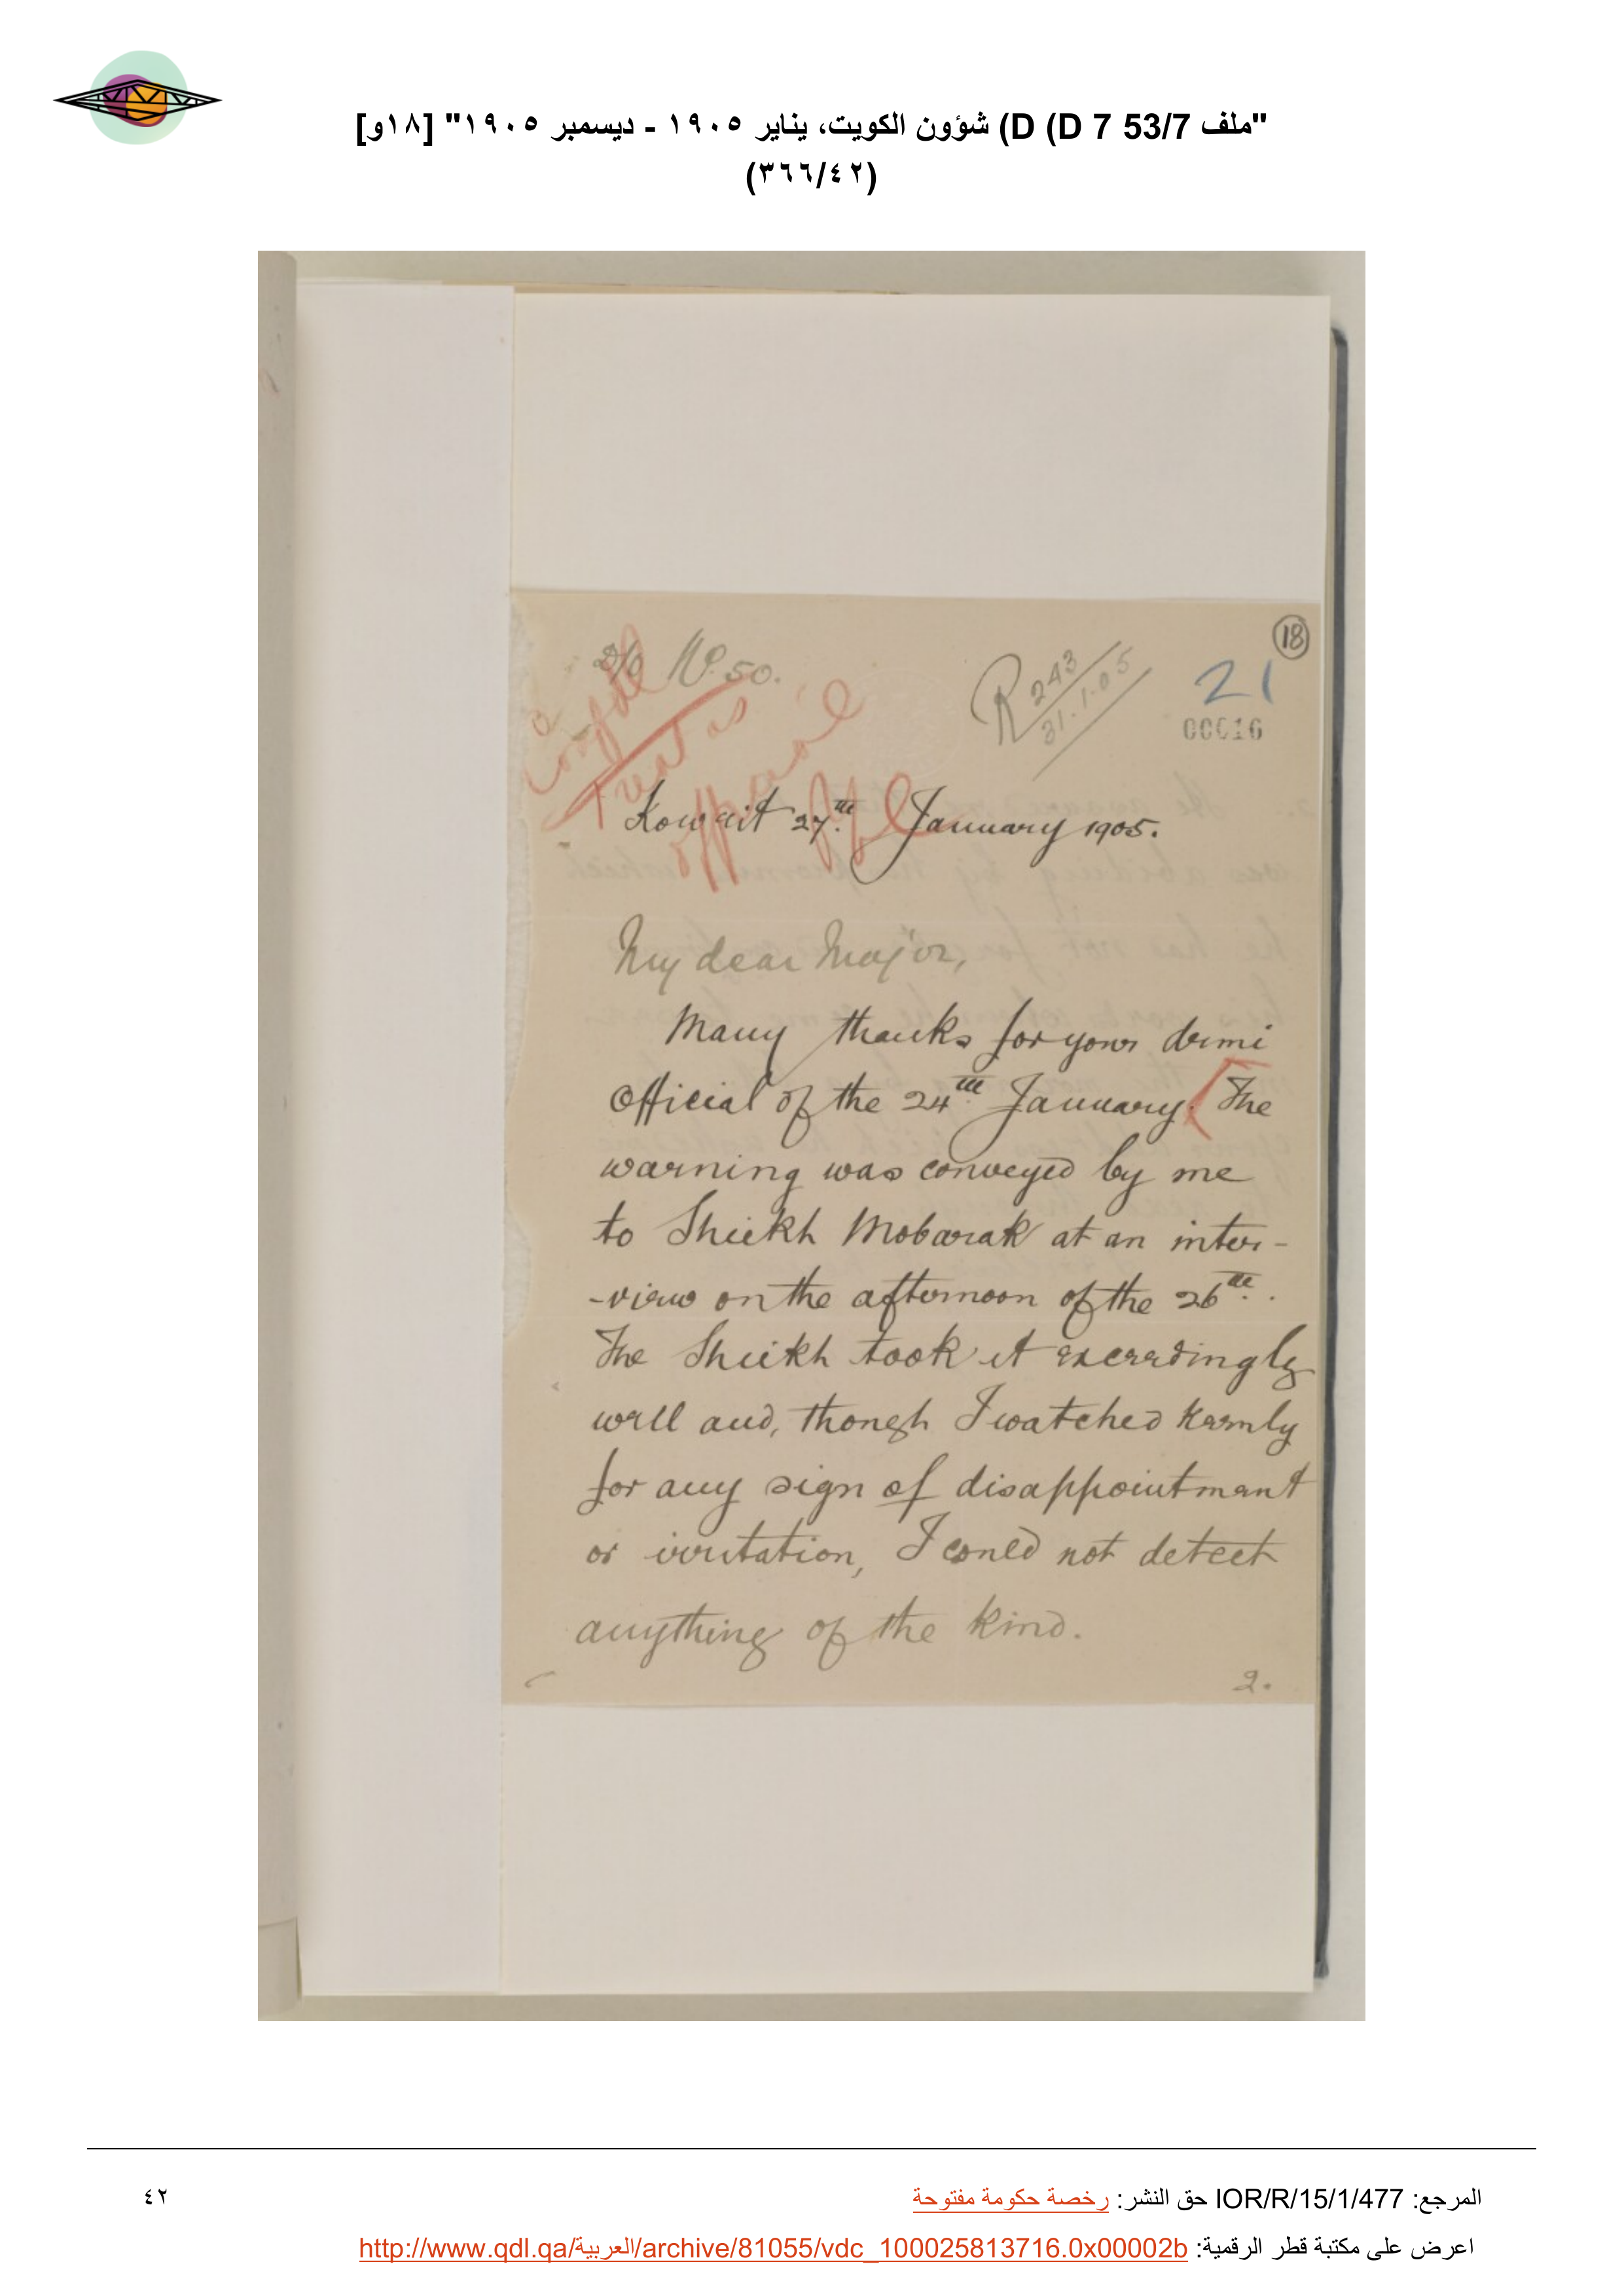 "ملف 53/7 D 7 D) D) شؤون الكويت، يناير ١٩٠٥ - ديسمبر ١٩٠٥" [١٨و]
(٣٦٦/٤٢)
18
D/o No. 50.
R 243
31.1.05
21
00016
Confdl
treat as
official
Koweit 27th January 1905.
My dear Major,
Many thanks for your demi
official of the 24th January. The
warning was conveyed by me
to Sheikh Mobarak at an inter-
-view on the afternoon of the 26th.
The Sheikh took it exceedingly
well and, though I watched keenly
for any sign of disappointment
or irritation, I could not detect
anything of the kind.
2.
المرجع: IOR/R/15/1/477 حق النشر: رخصة حكومة مفتوحة
٤٢
اعرض على مكتبة قطر الرقمية: http://www.qdl.qa/العربية/archive/81055/vdc_100025813716.0x00002b